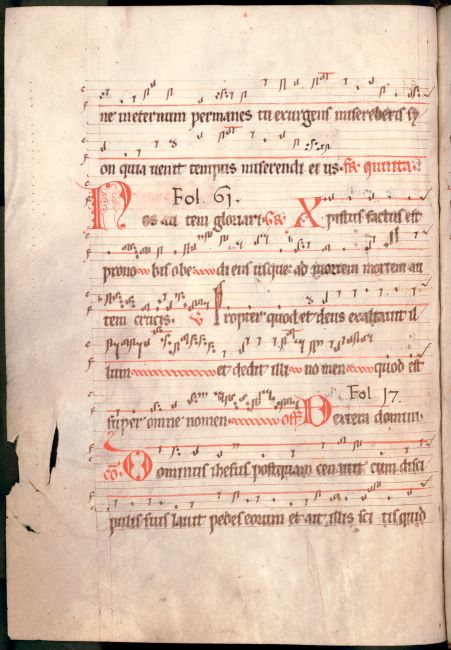 ne in eternum permanes tu exurgens misereberis sy
on quia uenit tempus miserendi eius. quinta.
Fol. 61.
Nos au tem gloriari. Gr. Xpistus factus est
prono bis obe di ens usque ad mortem mortem au
tem crucis. V Propter quod et deus exaltauit il
lum et dedit illi no men quod est
Fol. 17.
super omne nomen off. Dextera domini.
Co. Dominus ihesus postquam cenauit cum disci
pulis suis lauit pedes eorum et ait illis sci tis quid